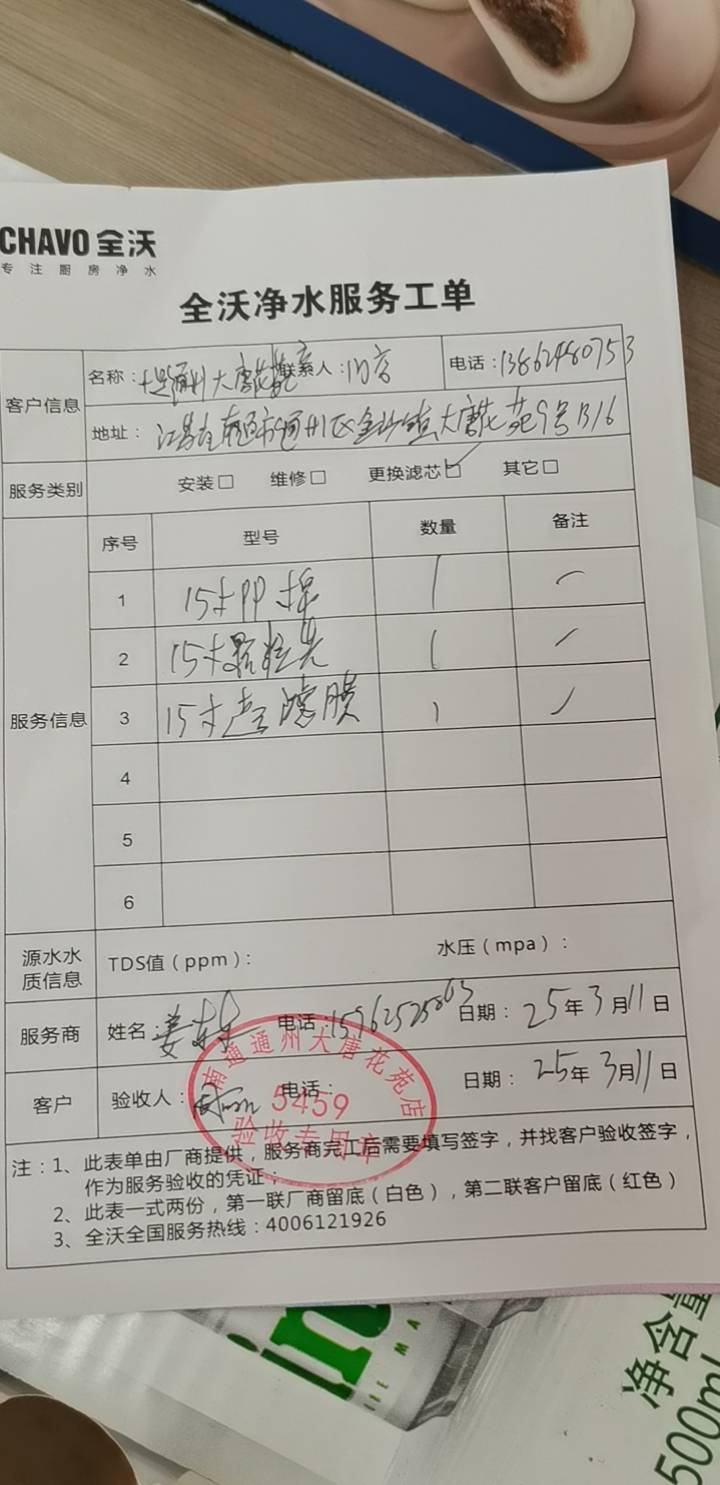 CHAVO 全沃
专注厨房净水
全沃净水服务工单
客户信息
名称：通州大唐花苑 联系人： 电话：13862480753
地址：江苏省南通市通州区金沙镇大唐花苑9号B16
服务类别 安装□ 维修□ 更换滤芯☑ 其它□
服务信息
序号 型号 数量 备注
1 15寸PP棉 1 /
2 15寸颗粒炭 1 /
3 15寸 滤膜 1 /
4
5
6
源水水质信息 TDS值（ppm）： 水压（mpa）：
服务商 姓名：姜 电话： 日期：25年3月11日
客户 验收人： 电话： 日期：25年3月11日
南通通州大唐花苑店
5459
验收专用章
注：1、此表单由厂商提供，服务商完工后需要填写签字，并找客户验收签字，
作为服务验收的凭证；
2、此表一式两份，第一联厂商留底（白色），第二联客户留底（红色）
3、全沃全国服务热线：4006121926
净含量
500ml